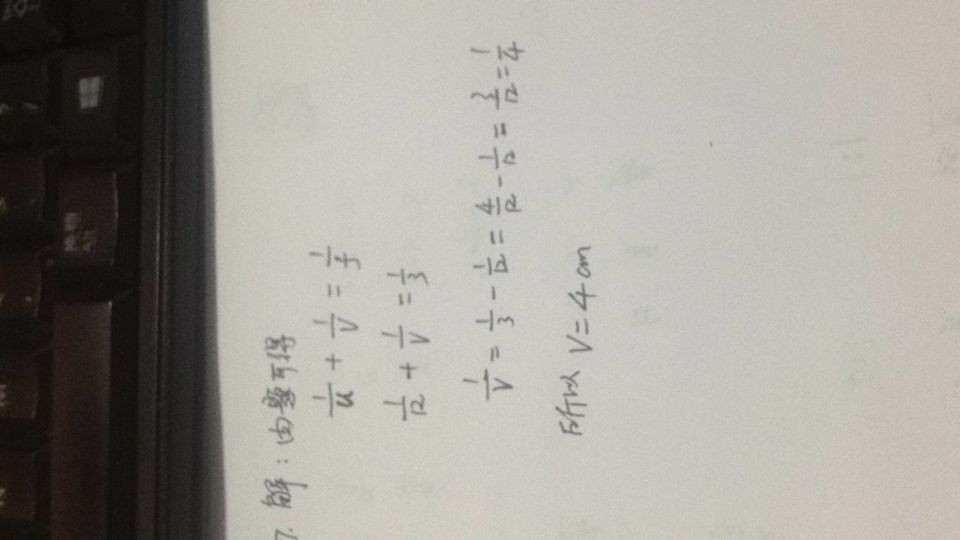 7. 解：由题可得
1/u + 1/V = 1/f
1/12 + 1/V = 1/3
1/V = 1/3 - 1/12 = 4/12 - 1/12 = 3/12 = 1/4
所以 V = 4 cm